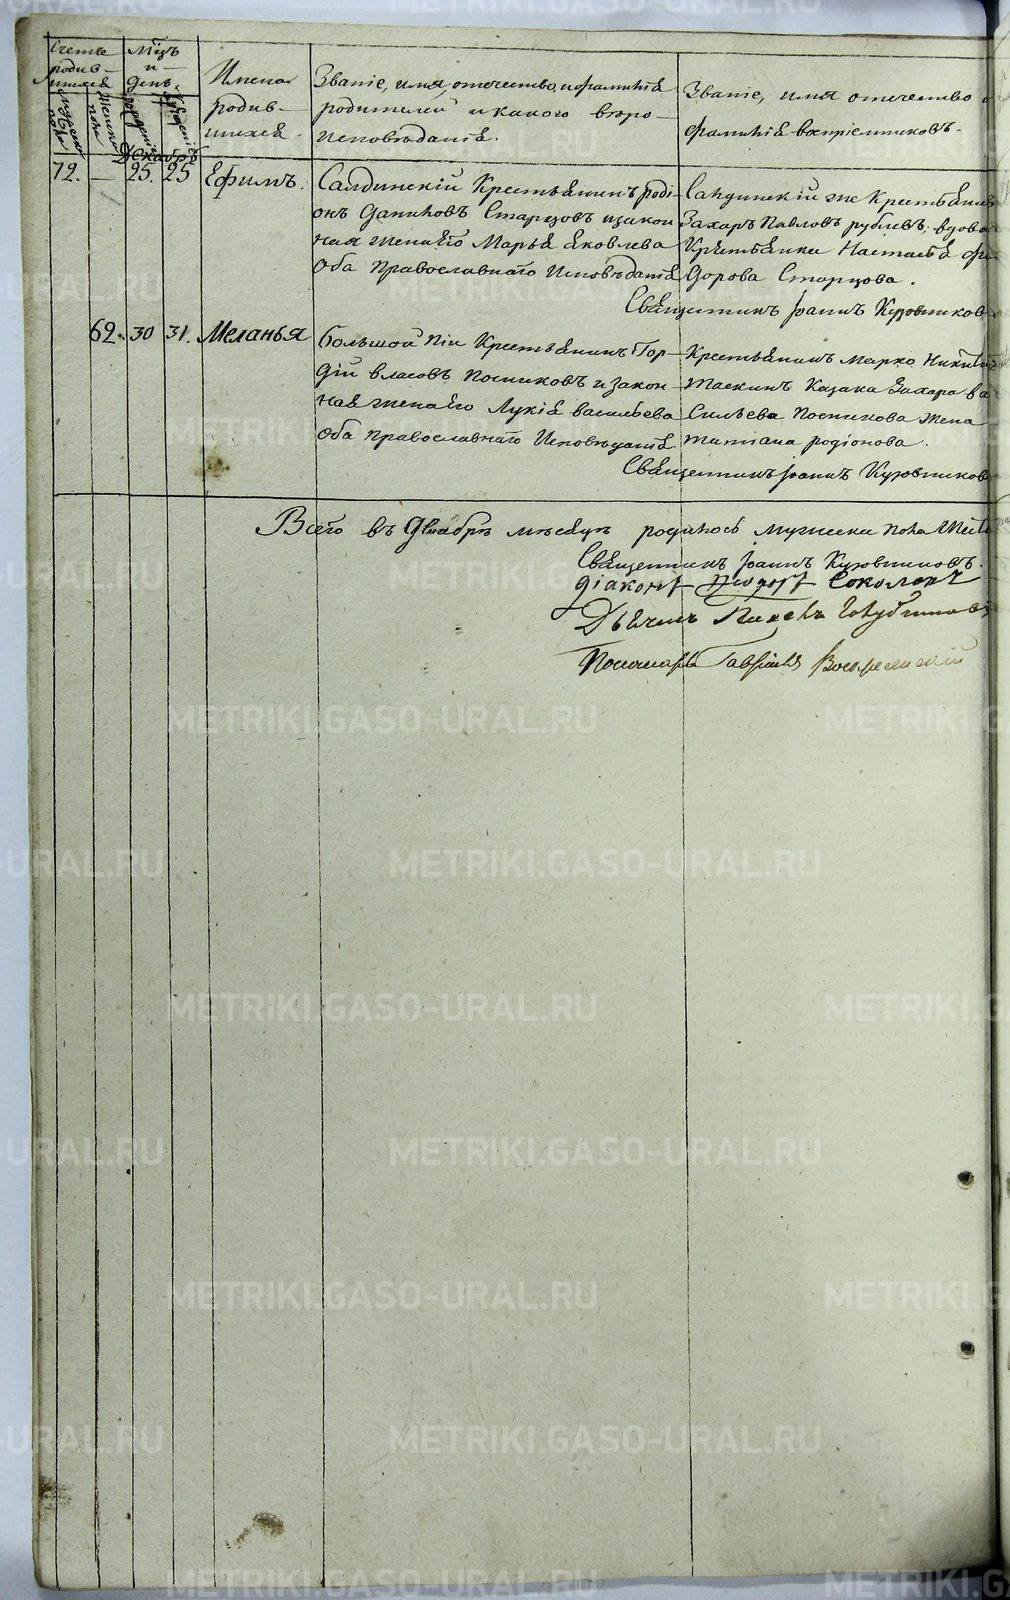 Счетъ родив-шихся
Мѣсяцъ и день
Имена родив-шихся.
Званіе, имя, отечество, и фамилія родителей и какого вѣро-исповѣданія.
Званіе, имя отечество и фамилія воспріемниковъ.
Мужеска пола
Женска пола
рожденія
крещенія
Декабрь
72. — 25. 25 Ефимъ.
Салдинскій Крестьянинъ Роді-
онъ Даниловъ Старцовъ и закон
ная жена его Марья Яковлева
Оба Православнаго Исповѣданія
Салдинскій же Крестьянинъ
Захаръ Павловъ Рублевъ. вдова
Крестьянка Настасья Фе-
дорова Старцова.
Священникъ Іоаннъ Кузовниковъ
62. 30 31. Меланья
большой Крестьянинъ Гор-
дій власовъ Посниковъ и закон-
ная жена его Лукія васильева
Оба Православнаго Исповѣданія
Крестьянинъ Марко Никитинъ
Казака Захара ва
сильева Посникова жена
татіана родіонова.
Священникъ Іоаннъ Кузовниковъ
Всего въ Декабрѣ мѣсяцѣ родилось мужеска пола
Священникъ Іоаннъ Кузовниковъ.
Діаконъ Соколовъ
Дьячекъ Павелъ Голубчиковъ
Пономарь Гавріилъ Воскресенскій
METRIKI.GASO-URAL.RU